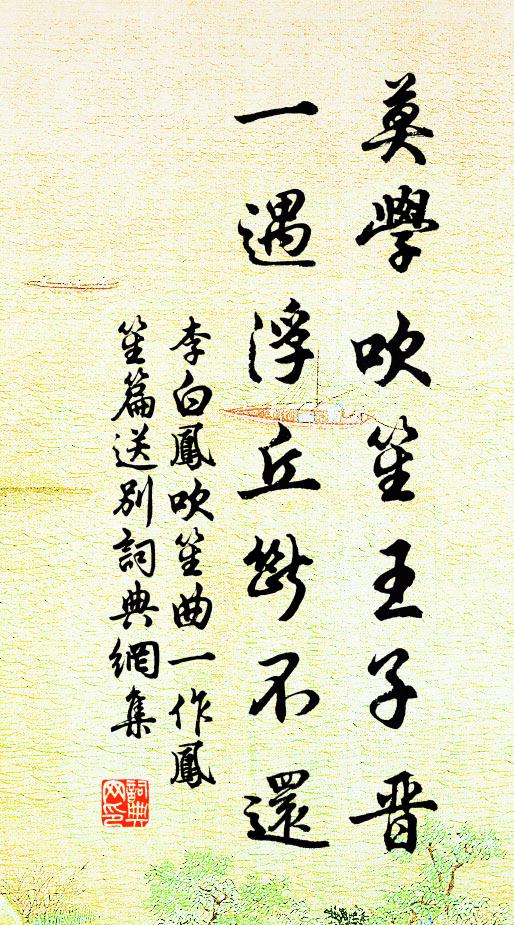 莫學吹笙王子晋
一遇浮丘斷不還
李白鳳吹笙曲一作鳳
笙篇送別詞典網集
詞典
网印